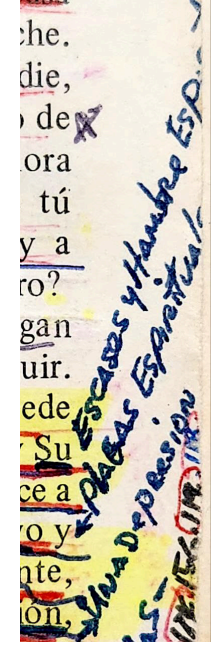 che.
die,
o de
ora
tú
y a
ro?
gan
uir.
ede
Su
ce a
vo y
nte,
ión,
Escases y Hambre Esp
Plagas Espirituale
una Depresion